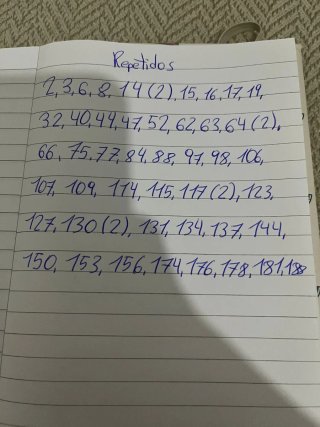 Repetidos
2, 3, 6, 8, 14 (2), 15, 16, 17, 19,
32, 40, 44, 47, 52, 62, 63, 64 (2),
66, 75, 77, 84, 88, 97, 98, 106,
107, 109, 114, 115, 117 (2), 123,
127, 130 (2), 131, 134, 137, 144,
150, 153, 156, 174, 176, 178, 181, 188